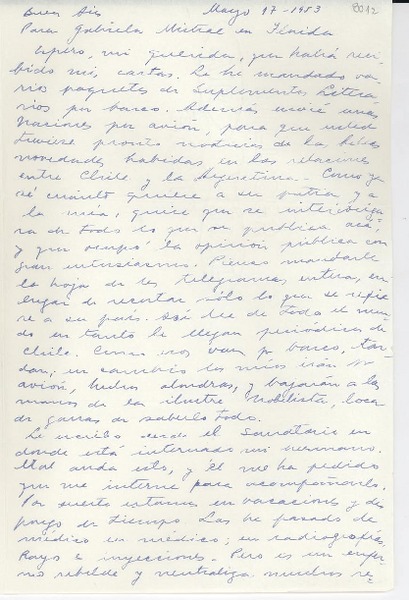 Buen Aires Mayo 17-1953 8012
Para Gabriela Mistral en Florida
Espero, mi querida, que habrá reci-
bido mis cartas. Le he mandado va-
rios paquetes de Suplementos Litera-
rios por barco. Además envié unas
por avión, para que usted
tuviese pronto noticias de las
novedades habidas en las relaciones
entre Chile y la Argentina. Como yo
sé cuánto quiere a su patria y a
la mía, quise que se
ra de todo lo que se publica acá
y que ocupó la opinión pública con
gran entusiasmo. Pienso mandarle
la hoja de los telegramas entera, en
lugar de recortar sólo lo que se refie-
re a su país. Así lee de todo el mun-
do en tanto le llegan periódicos de
Chile. Como esos van por barco, tar-
dan; en cambio los míos irán en
avión, hechos alondras, y bajarán a las
manos de la ilustre Nobelista, loca
de ganas de saberlo todo.
Le escribo desde el Sanatorio en
donde está internado mi hermano.
Mal anda esto, y él me ha pedido
que me interne para acompañarlo.
Por suerte estamos en vacaciones y dis-
pongo de tiempo. Las he pasado de
médico en médico; en radiografías,
Rayos e inyecciones. Pero es un enfer-
mo rebelde y neutraliza muchos re-